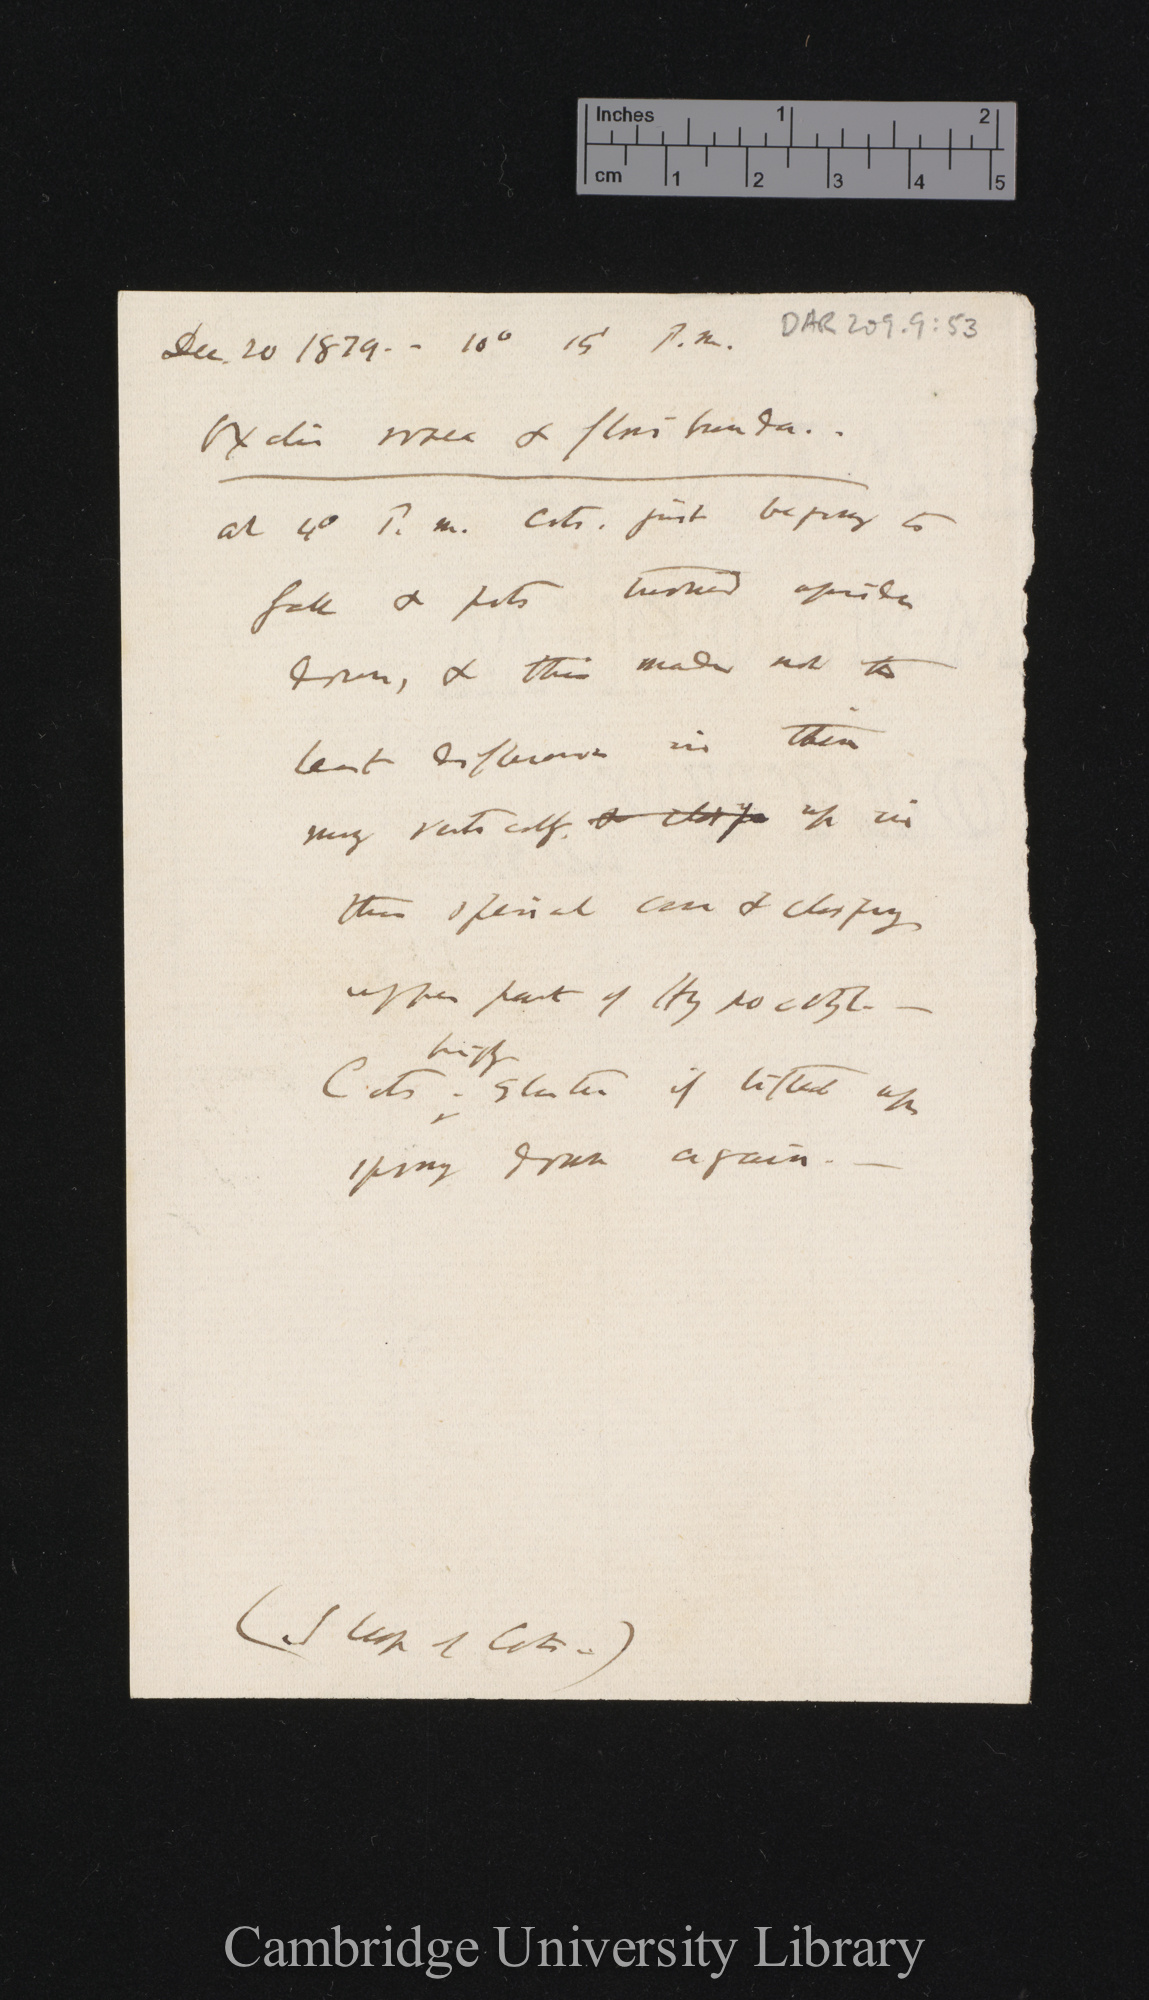 Inches 1 2
cm 1 2 3 4 5
DAR 209.9:53
Dec. 20 1879. - 10° 15' P.m.
Oxalis rosea & floribunda. .
at 4° P. m. cots. just beging to
fall & pots turned upside
down, & this made not the
least difference in their
ring vertically. & up in
this special case & clasping
upper part of Hypocotyl. —
Cots. if lifted up
sprung down again. —
(Sleep of Cots.)
Cambridge University Library